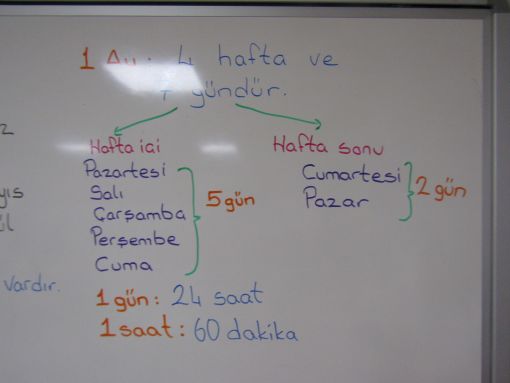 1 Ay: 4 hafta ve
7 gündür.
Hafta içi
Pazartesi
Salı
Çarşamba
Perşembe
Cuma
5 gün
Hafta sonu
Cumartesi
Pazar
2 gün
1 gün: 24 saat
1 saat: 60 dakika
vardır.